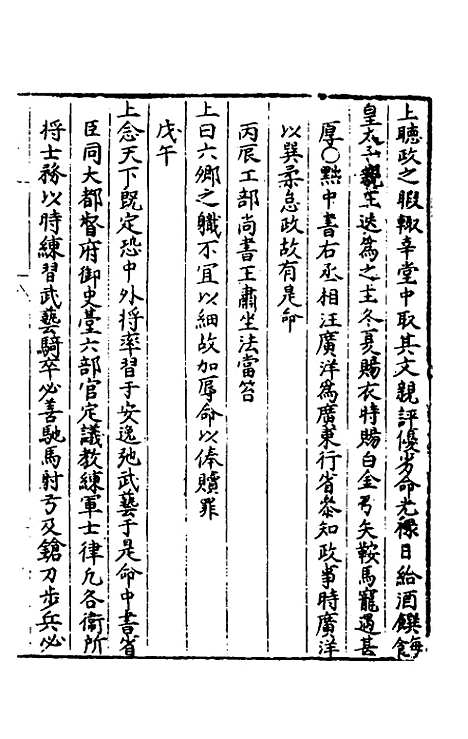 上聽政之暇輙幸堂中取其文親評優劣命光祿日給酒饌每食
皇太子親王迭為之主冬夏賜衣時賜白金弓矢鞍馬寵遇甚
厚○黜中書右丞相汪廣洋為廣東行省叅知政事時廣洋
以巽柔怠政故有是命
丙辰工部尚書王肅坐法當笞
上曰六卿之職不宜以細故加辱命以俸贖罪
戊午
上念天下既定恐中外將率習于安逸弛武藝于是命中書省
臣同大都督府御史臺六部官定議教練軍士律凡各衞所
將士務以時練習武藝騎卒必善馳馬射弓及鎗刀步兵必